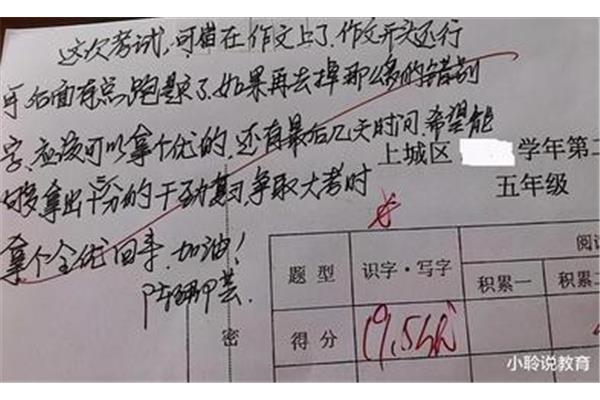 这次考试,可惜在作文上了.作文开头还行
可后面有点跑题了.如果再去掉那么多的错别
字,应该可以拿个优的.还有最后几天时间,希望能
够拿出十二分的干劲复习,争取大考时
拿个全优回来.加油!
上城区 学年第二
五年级
密
题型 识字·写字 阅读
积累一 积累二
得分 19.5
小聆说教育